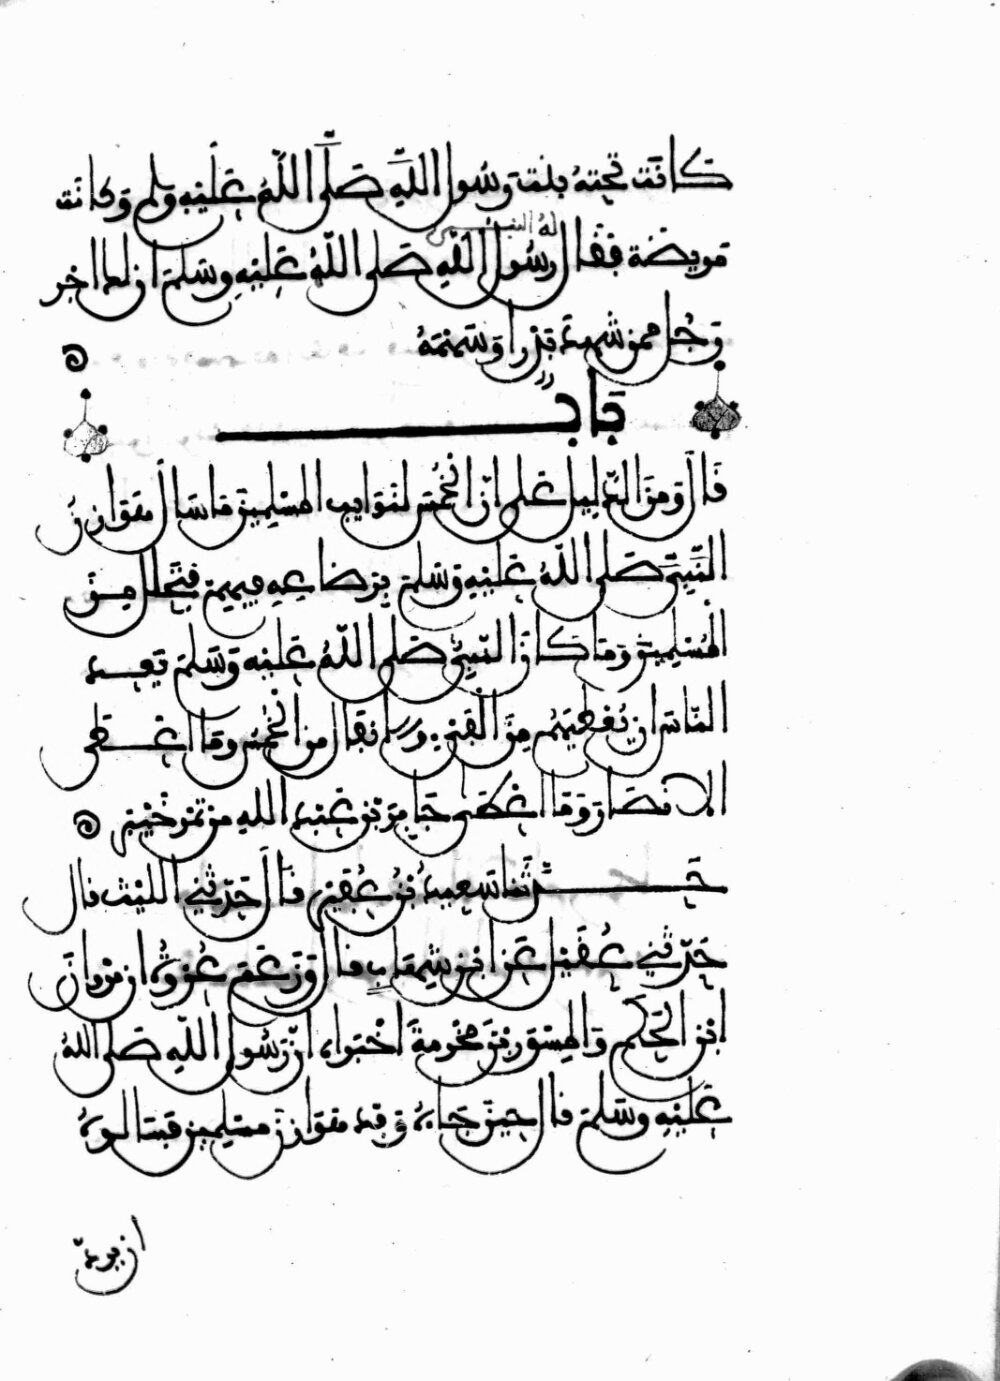 كانت تحته بنت رسول الله صلى الله عليه وسلم وكانت
له النبي
مريضة فقال رسول الله صلى الله عليه وسلم ان لك اجر
رجل ممن شهد بدرا وسهمه
باب
قال ومن الدليل على ان الخمس لنوايب المسلمين ما سال هوازن
النبي صلى الله عليه وسلم برضاعه فيهم فتحلل من
المسلمين وما كان النبي صلى الله عليه وسلم يعد
الناس ان يعطيهم من الفيء والانفال من الخمس وما اعطى
الانصار وما اعطى جابر بن عبد الله من تمر خيبر
حدثنا سعيد بن عفير قال حدثني الليث قال
حدثني عقيل عن ابن شهاب قال وزعم عروة ان مروان
ابن الحكم والمسور بن مخرمة اخبراه ان رسول الله صلى الله
عليه وسلم قال حين جاءه وفد هوازن مسلمين فسالوه
ان يرد